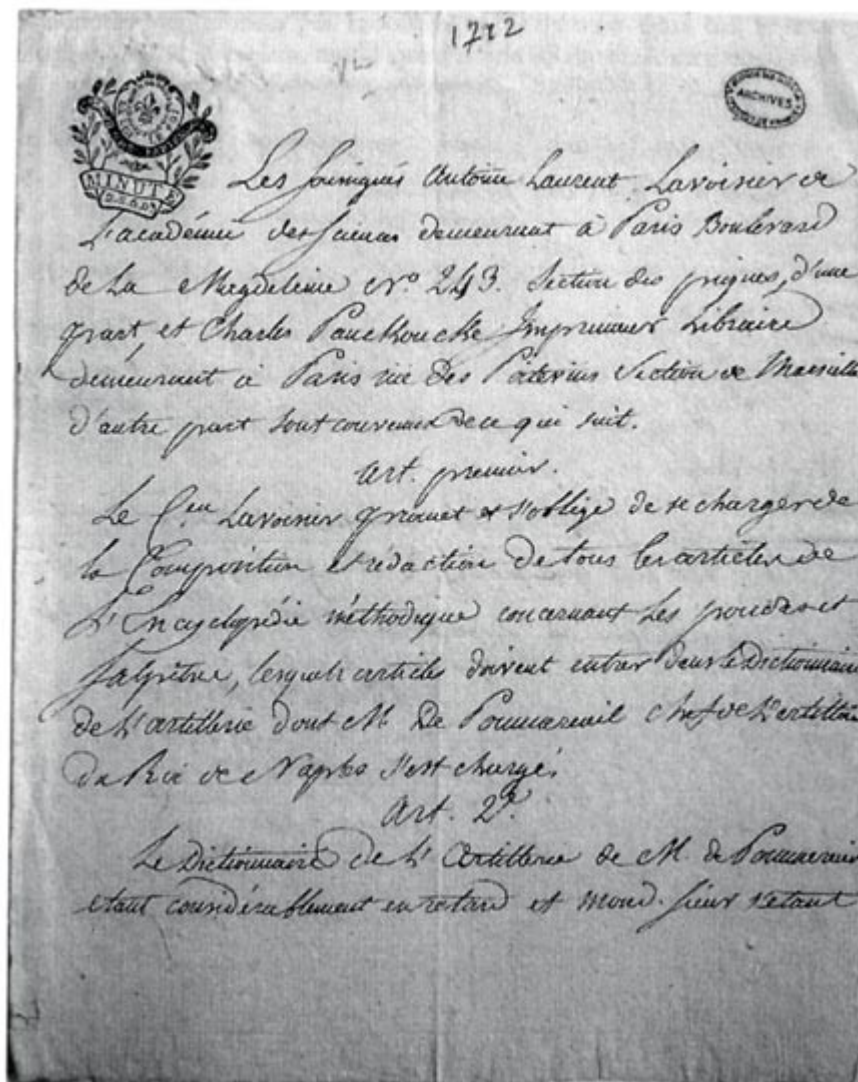 1712
ARCHIVES
MINUTE
Les soussignés Antoine Laurent Lavoisier de
L'académie des sciences demeurant à Paris Boulevard
de la Magdeleine N.º 243. Section des piques, d'une
part, et Charles Panckoucke Imprimeur Libraire
demeurant à Paris rue des Poitevins Section de Marseille
d'autre part sont convenus de ce qui suit.
Art. premier.
Le C.en Lavoisier promet et s'oblige de se charger de
la Composition et rédaction de tous les articles de
L'Encyclopédie méthodique concernant les poudres et
salpêtre, lesquels articles doivent entrer dans le Dictionnaire
de L'artillerie dont M. De Pommereuil chef de L'artillerie
du Roi de Naples s'est chargé.
Art. 2.e
Le Dictionnaire de L'Artillerie de M. de Pommereuil
étant considérablement en retard et mond. sieur s'étant